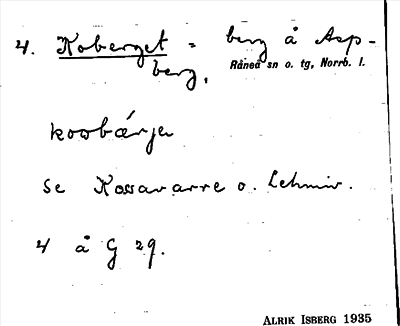 4. Koberget = berg å Asp-
berg.
Råneå sn o. tg, Norrb. l.
koobärje
se Kossavarre o. Lehmiv.
4 å G 29.
ALRIK ISBERG 1935